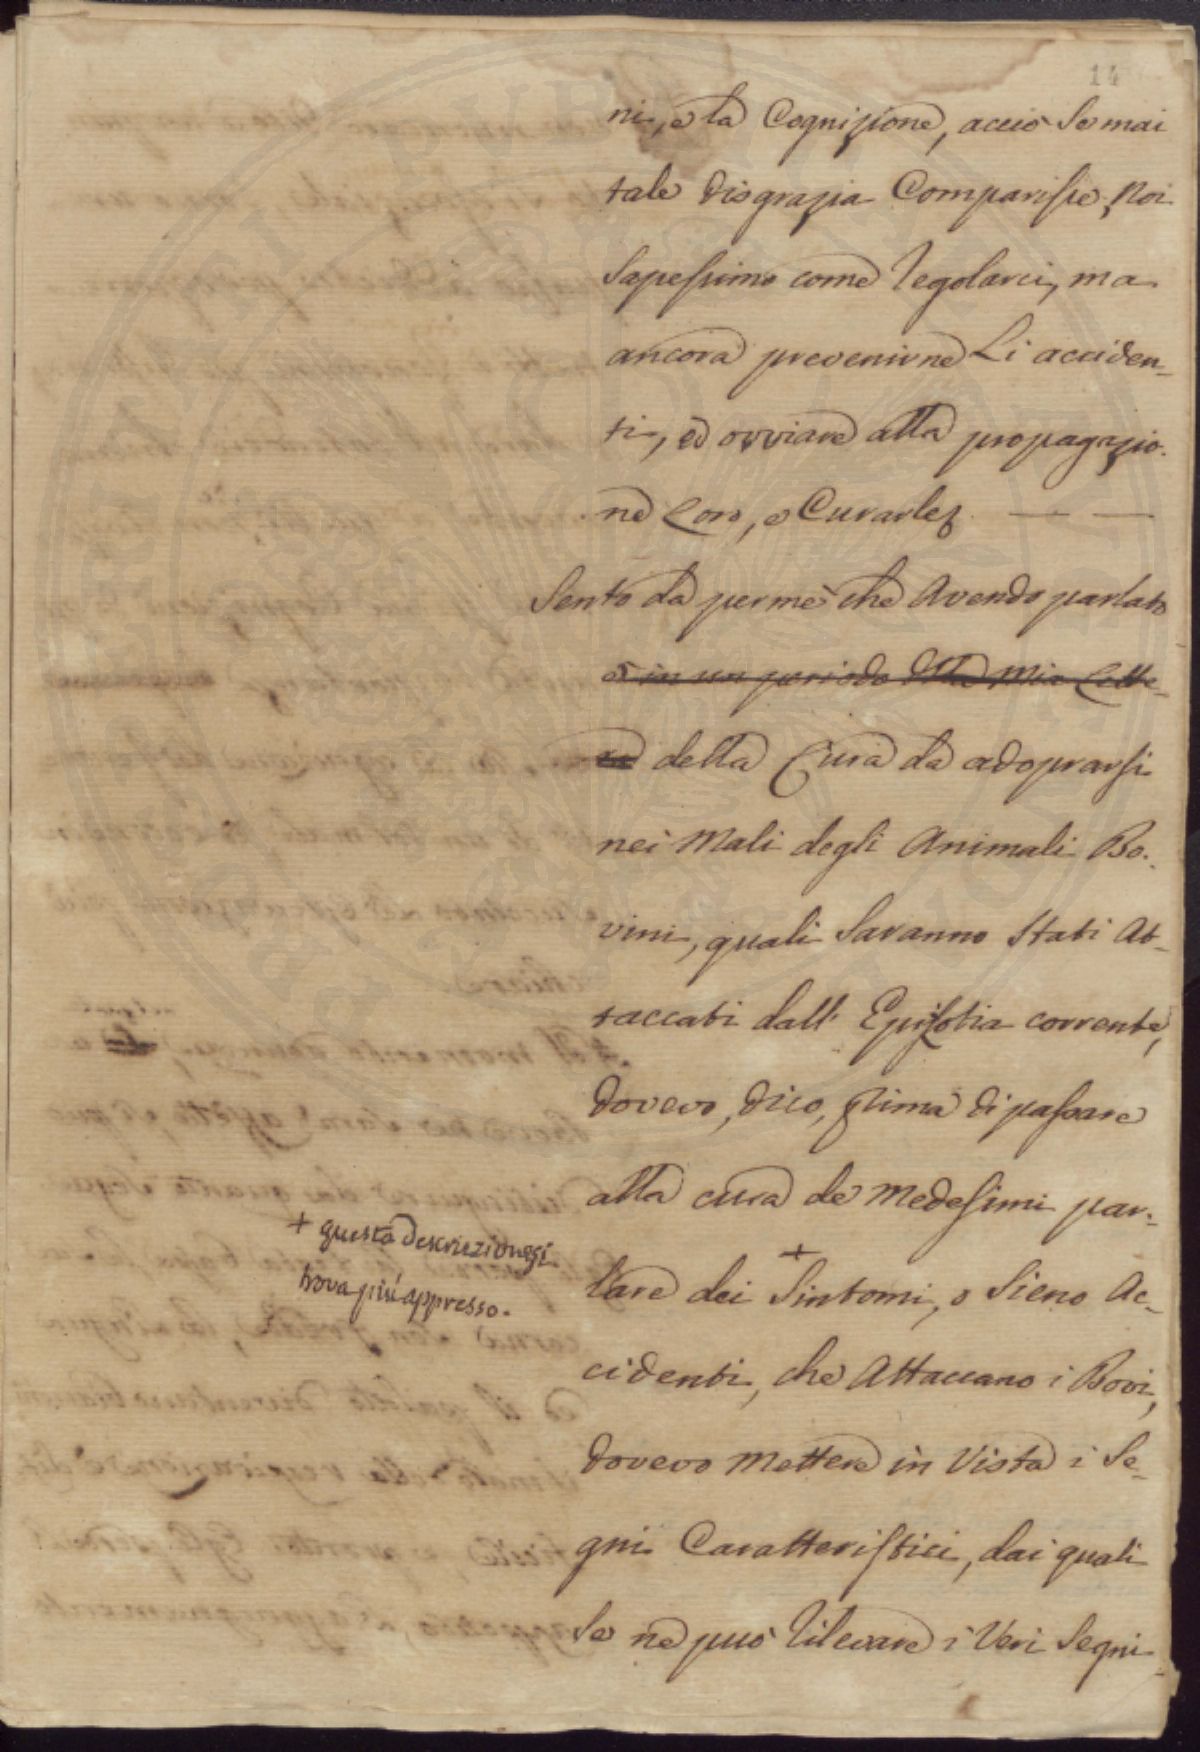 14
ni, e la Cognizione, acciò se mai
tale disgrazia Comparisse, Noi
sapessimo come regolarci, ma
ancora prevenirne Li acciden-
ti, ed ovviare alla propagazio-
ne Loro, e Curarle
Sento da per me che Avendo parlato
in un periodo della Mia Lette-
ra della Cura da adoprarsi
nei Mali degli Animali Bo-
vini, quali saranno stati At-
taccati dall' Epizotia corrente,
dovevo, dico, prima di passare
alla cura de medesimi par-
+
lare dei Sintomi, o sieno Ac-
cidenti, che Attaccano i Bovi,
dovevo Mettere in Vista i Se-
gni Caratteristici, dai quali
se ne può rilevare i Veri segni
+ questa descrizione si
trova più appresso.